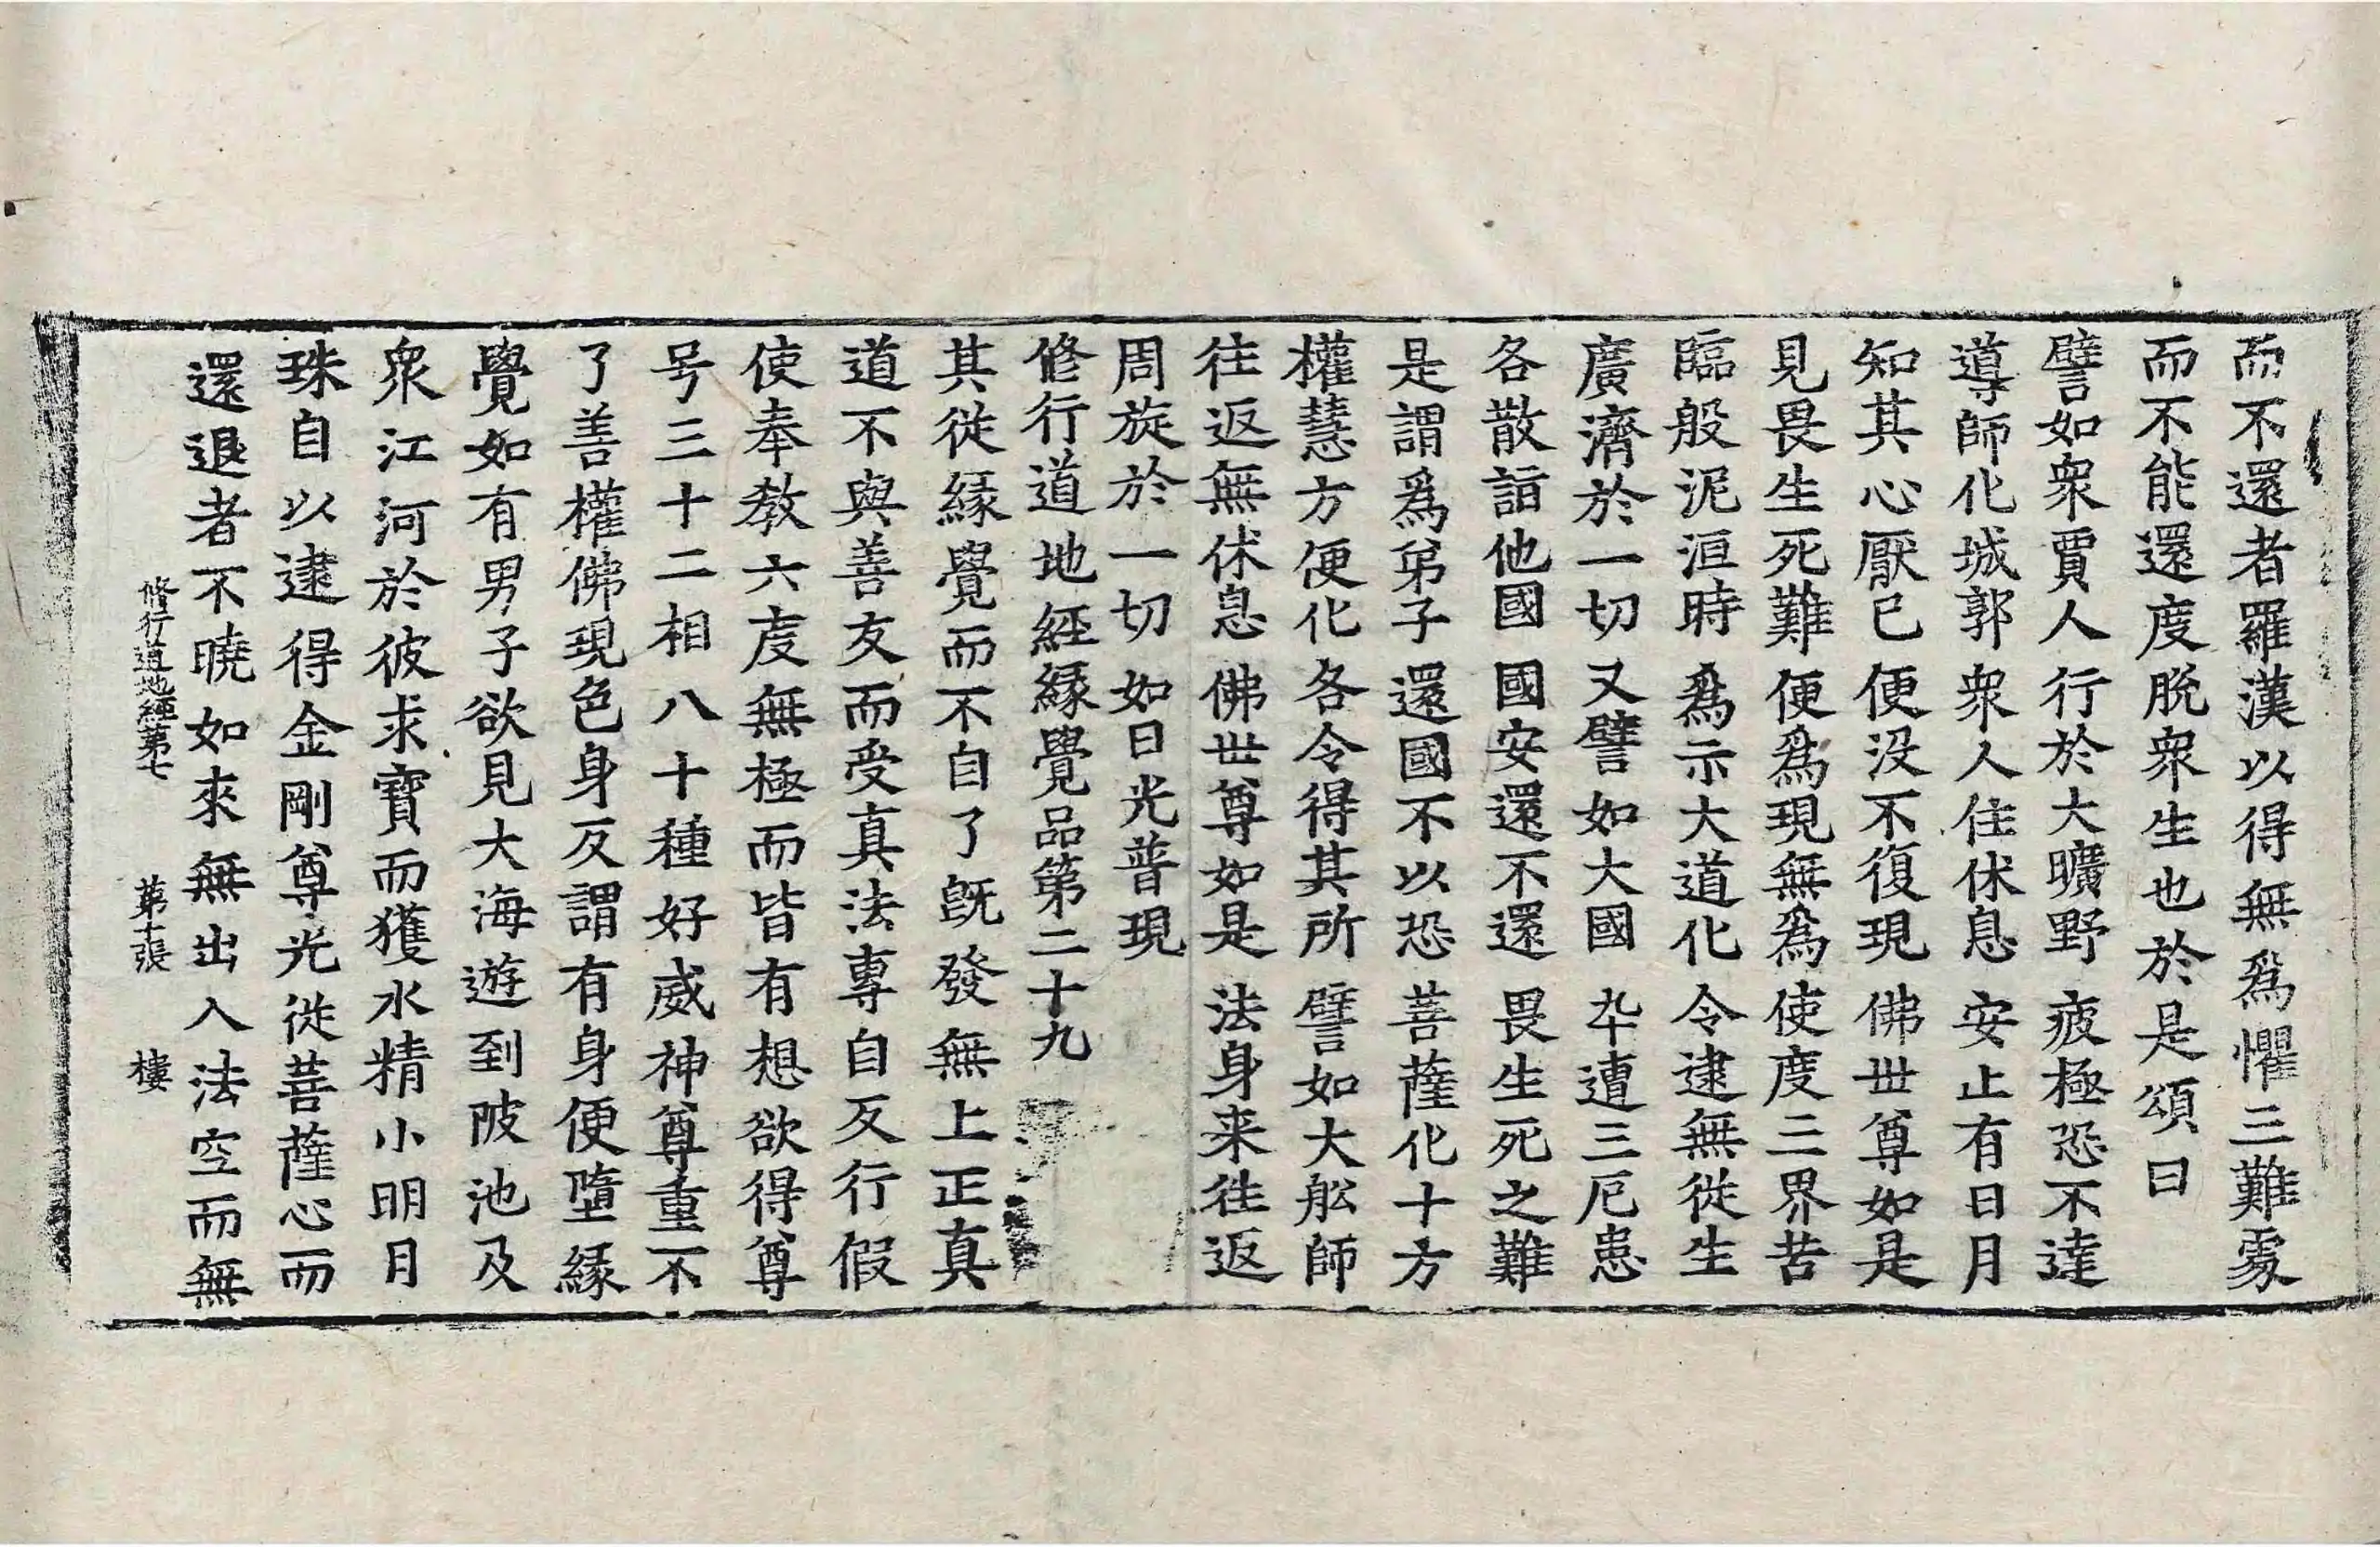 而不還者羅漢以得無爲懼三難處
而不能還度脫衆生也於是頌曰
譬如衆賈人行於大曠野 疲極恐不達
導師化城郭 衆人住休息 安止有日月
知其心厭已 便没不復現 佛世尊如是
見畏生死難 便爲現無爲 使度三界苦
臨般泥洹時 爲示大道化 令逮無從生
廣濟於一切 又譬如大國 卒遭三厄患
各散詣他國 國安還不還 畏生死之難
是謂爲弟子 還國不以恐 菩薩化十方
權慧方便化 各令得其所 譬如大舩師
往返無休息 佛世尊如是 法身来往返
周旋於一切 如日光普現
修行道地經緣覺品第二十九
其從緣覺而不自了旣發無上正真
道不與善友而受真法專自反行假
使奉教六度無極而皆有想欲得尊
号三十二相八十種好威神尊重不
了善權佛現色身反謂有身便墮緣
覺如有男子欲見大海遊到陂池及
衆江河於彼求寶而獲水精小明月
珠自以逮得金剛尊光從菩薩心而
還退者不曉如來無出入法空而無
修行道地經第七 第十張 樓